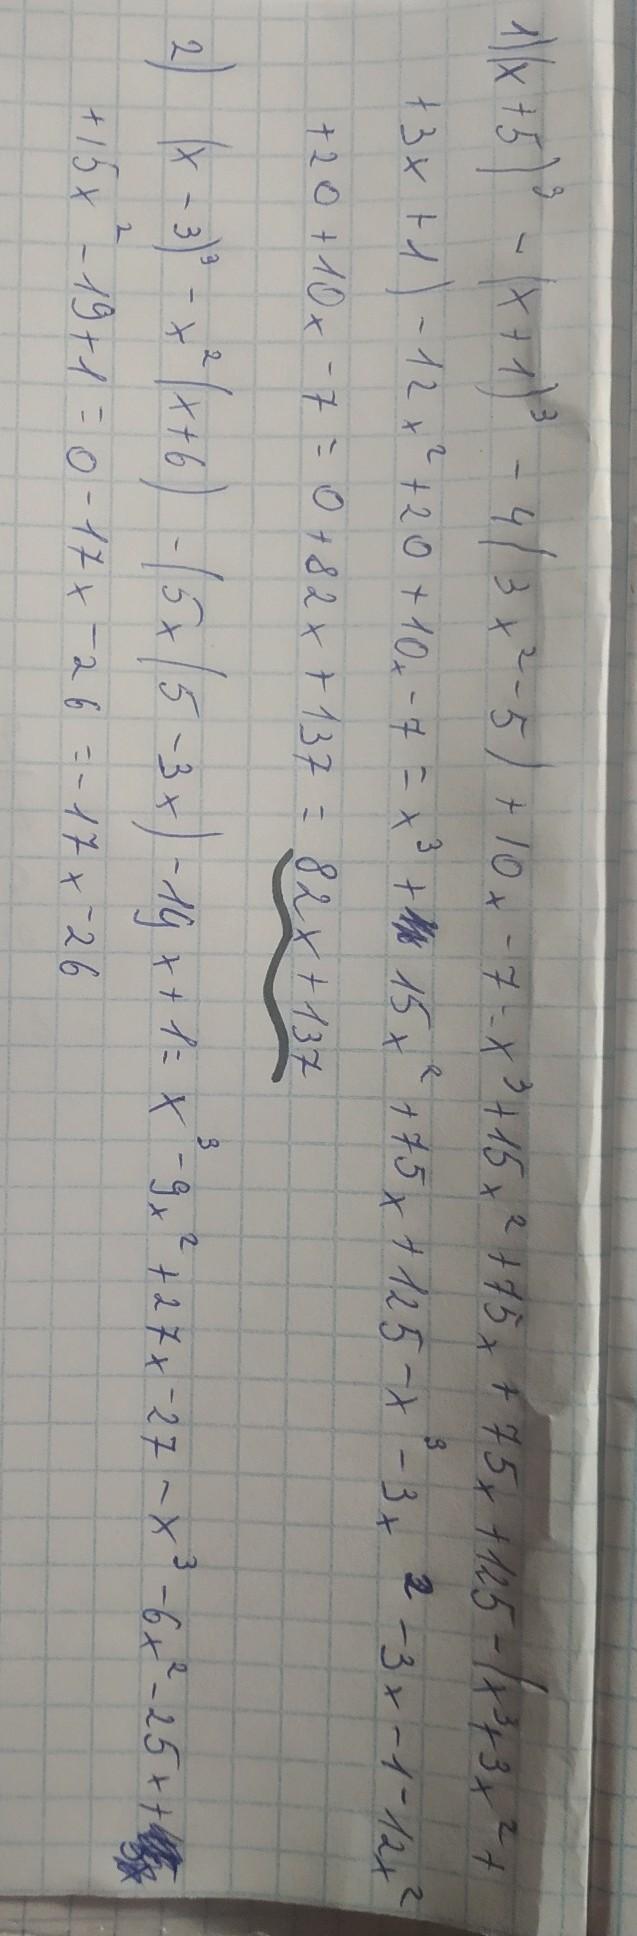 1) (x+5)³ - (x+1)³ - 4(3x²-5) + 10x - 7 = x³ + 15x² + 75x + 75x + 125 - (x³+3x²+
+3x+1) - 12x² + 20 + 10x - 7 = x³ + 15x² + 75x + 125 - x³ - 3x² - 3x - 1 - 12x²
+20 + 10x - 7 = 0 + 82x + 137 = 82x + 137
2) (x-3)³ - x²(x+6) - (5x(5-3x) - 19x + 1 = x³ - 9x² + 27x - 27 - x³ - 6x² - 25x +
+15x² - 19 + 1 = 0 - 17x - 26 = -17x - 26